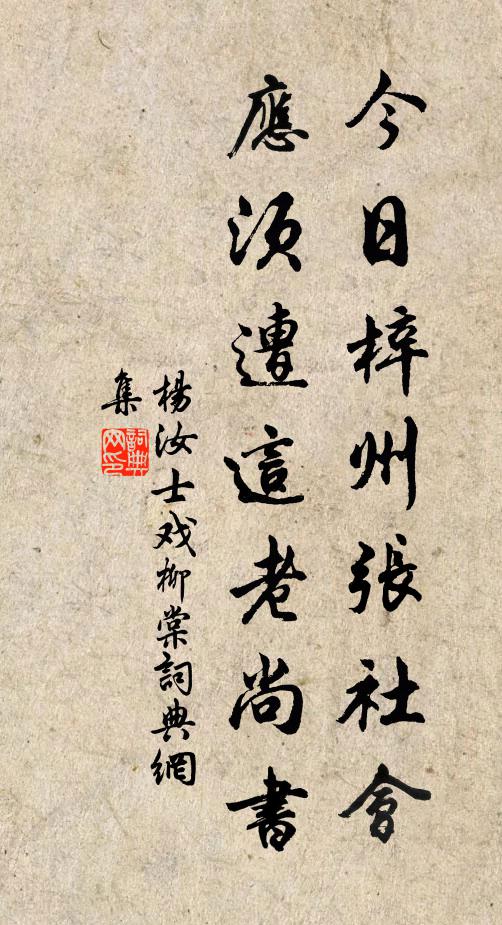 今日梓州張社會
應須遭這老尚書
楊汝士戏柳棠詞典網
集
詞典网印